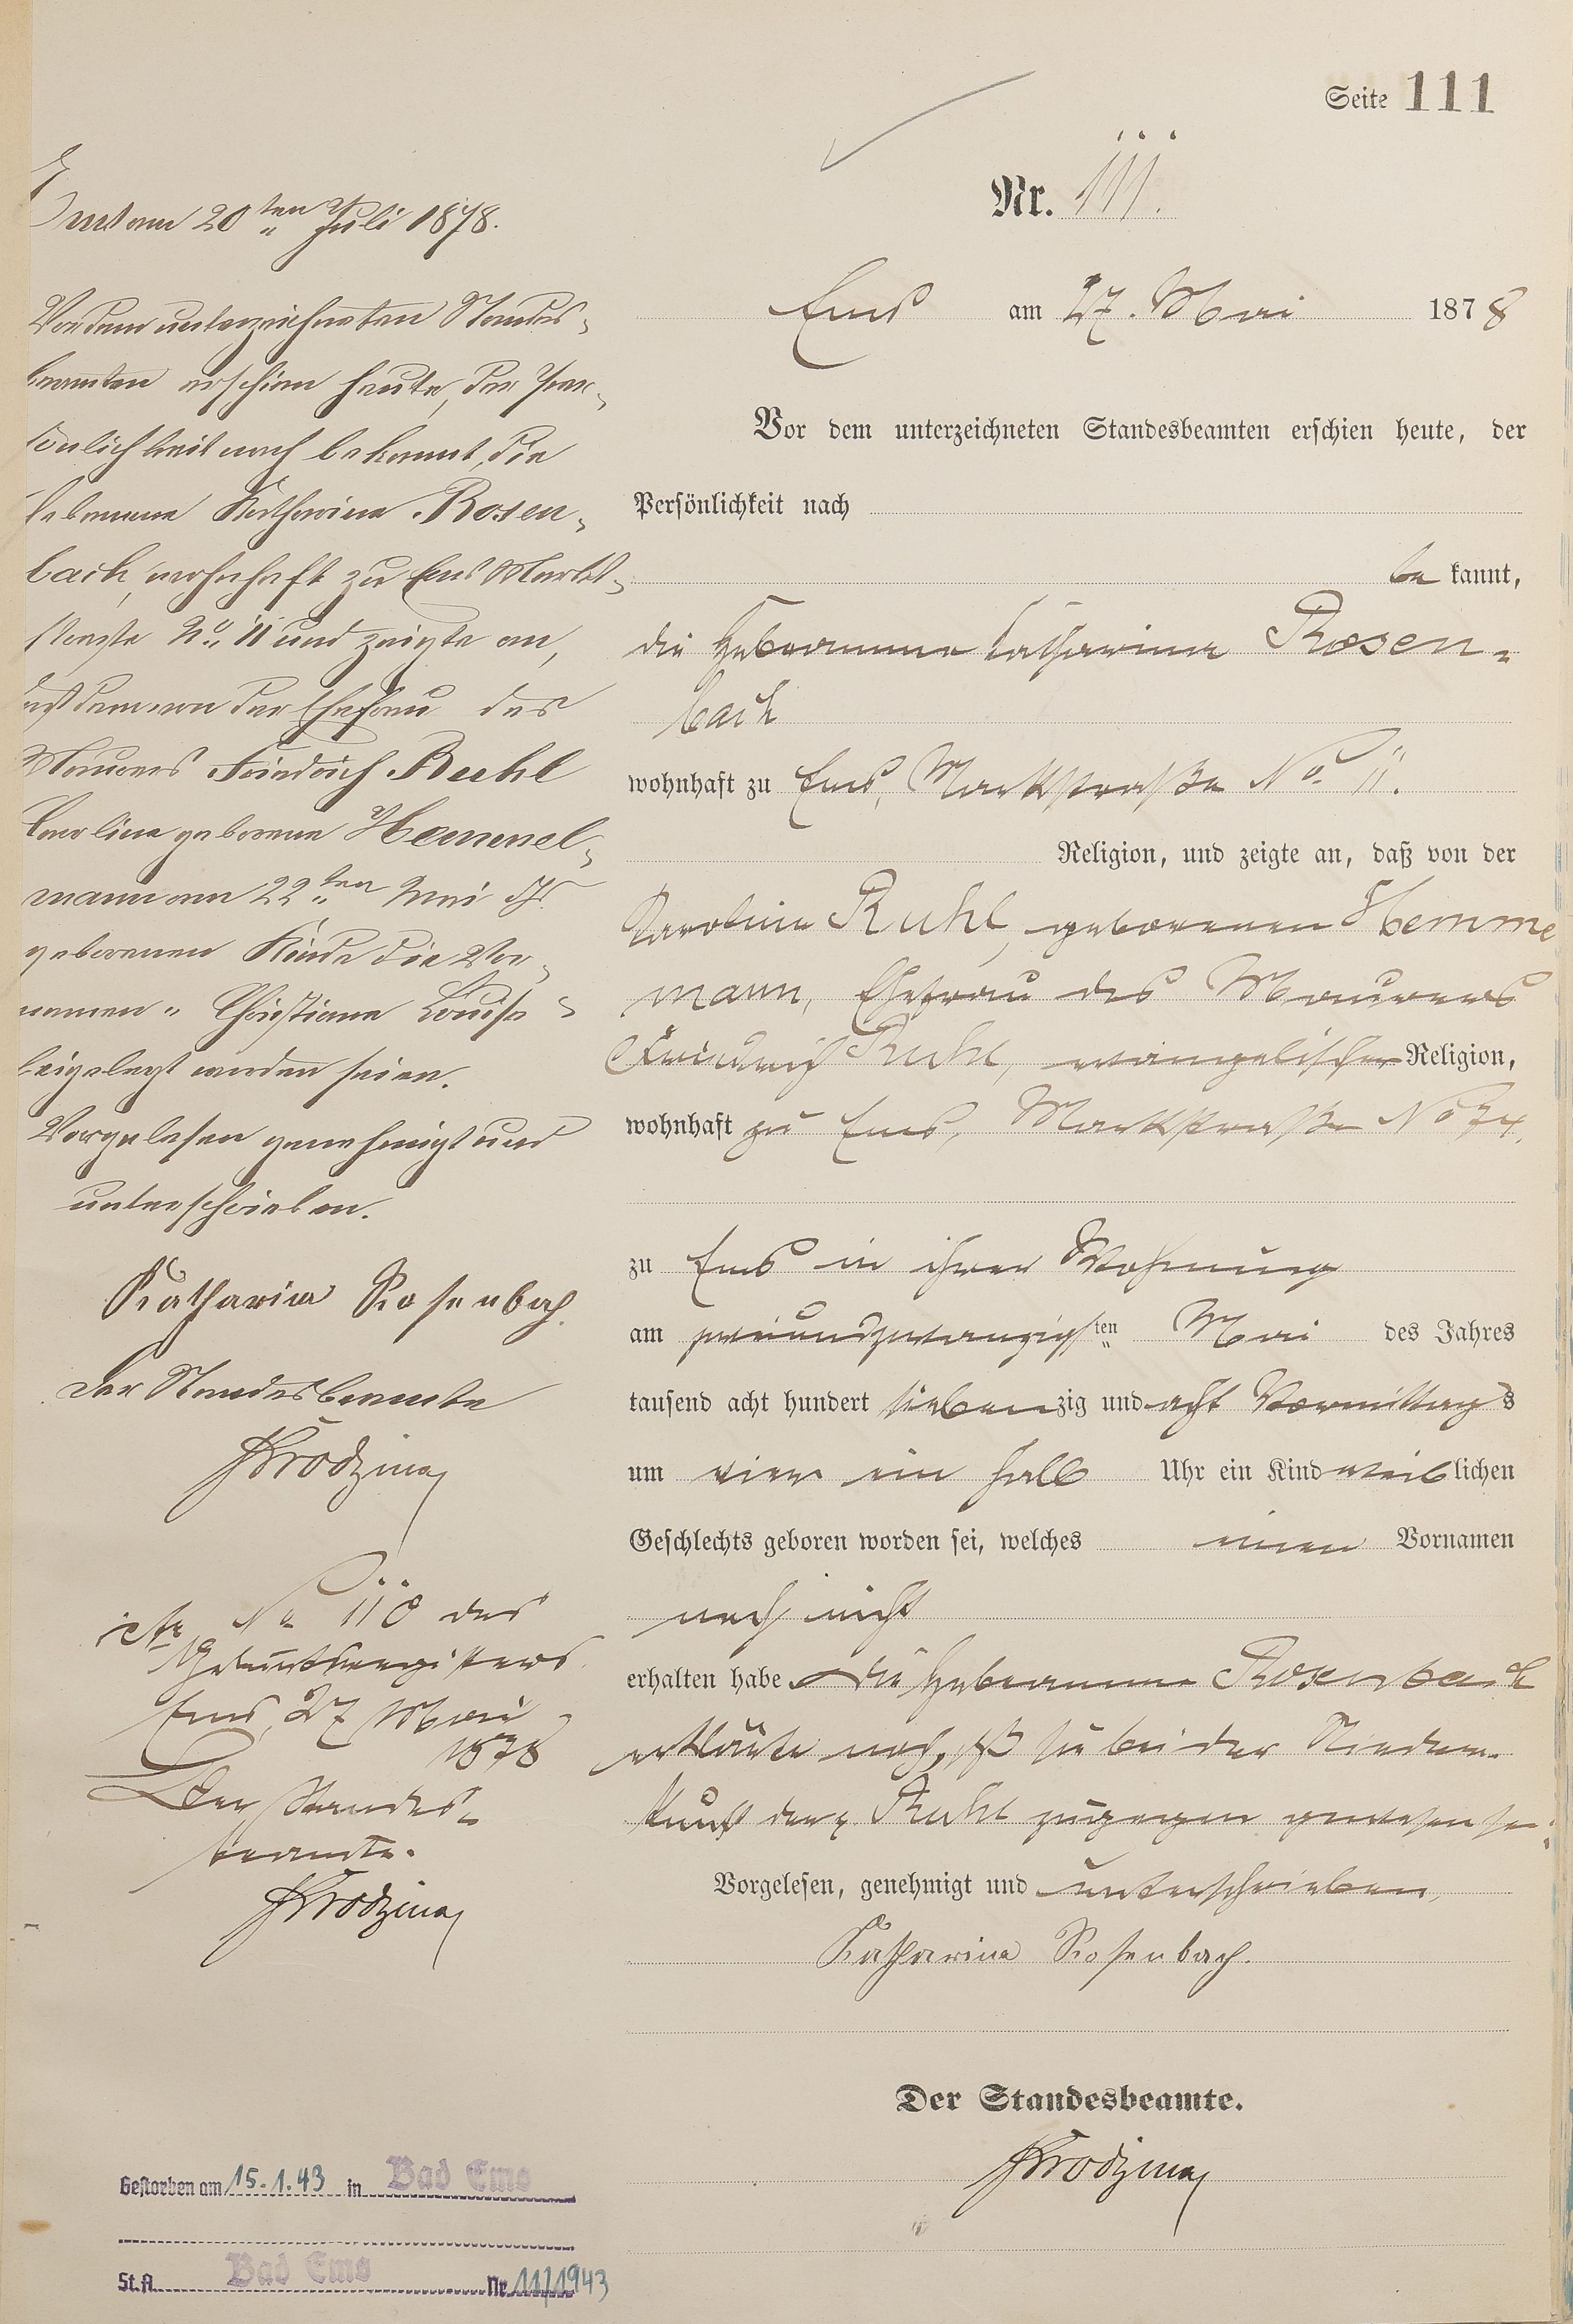 Seite 111
Nr. 111.
Ems am 27. Mai 1878
Vor dem unterzeichneten Standesbeamten erschien heute, der
Persönlichkeit nach
bekannt,
die Hebamme Catharina Rosen-
bach
wohnhaft zu Ems, Marktstraße No. 11.
Religion, und zeigte an, daß von der
Karoline Ruhl, geborenen Hemme
mann, Ehefrau des Maurers
Friedrich Ruhl, evangelischer Religion,
wohnhaft zu Ems, Marktstraße No 74,
zu Ems in ihrer Wohnung
am zweiundzwanzigsten Mai des Jahres
tausend acht hundert siebenzig und acht Vormittags
um vier ein halb Uhr ein Kind weiblichen
Geschlechts geboren worden sei, welches einen Vornamen
noch nicht
erhalten habe die Hebamme Rosenbach
erklärte noch, daß sie bei der Nieder-
kunft der Ruhl zugegen gewesen sei.
Vorgelesen, genehmigt und unterschrieben,
Katharina Rosenbach.
Der Standesbeamte.
am 20ten Juli 1878.
Vor dem unterzeichneten Standes-
beamten erschien heute, der Per-
sönlichkeit nach bekannt, die
Hebamme Katharina Rosen-
bach, wohnhaft zu Ems Markt-
straße No. 11 und zeigte an,
daß dem von der Ehefrau des
Maurers Friedrich Ruhl
Caroline geborene Hemmel-
mann am 22ten Mai ds
geborenen Kinde die Vor-
namen " Christiane Louise "
beigelegt worden seien.
Vorgelesen genehmigt und
unterschrieben.
Katharina Rosenbach.
Der Standesbeamte
No 110 des
Geburtsregisters
Ems, 27 Mai
1878
Der Standes-
beamte.
Gestorben am 15.1.43 in Bad Ems
St.A. Bad Ems Nr. 11/1943